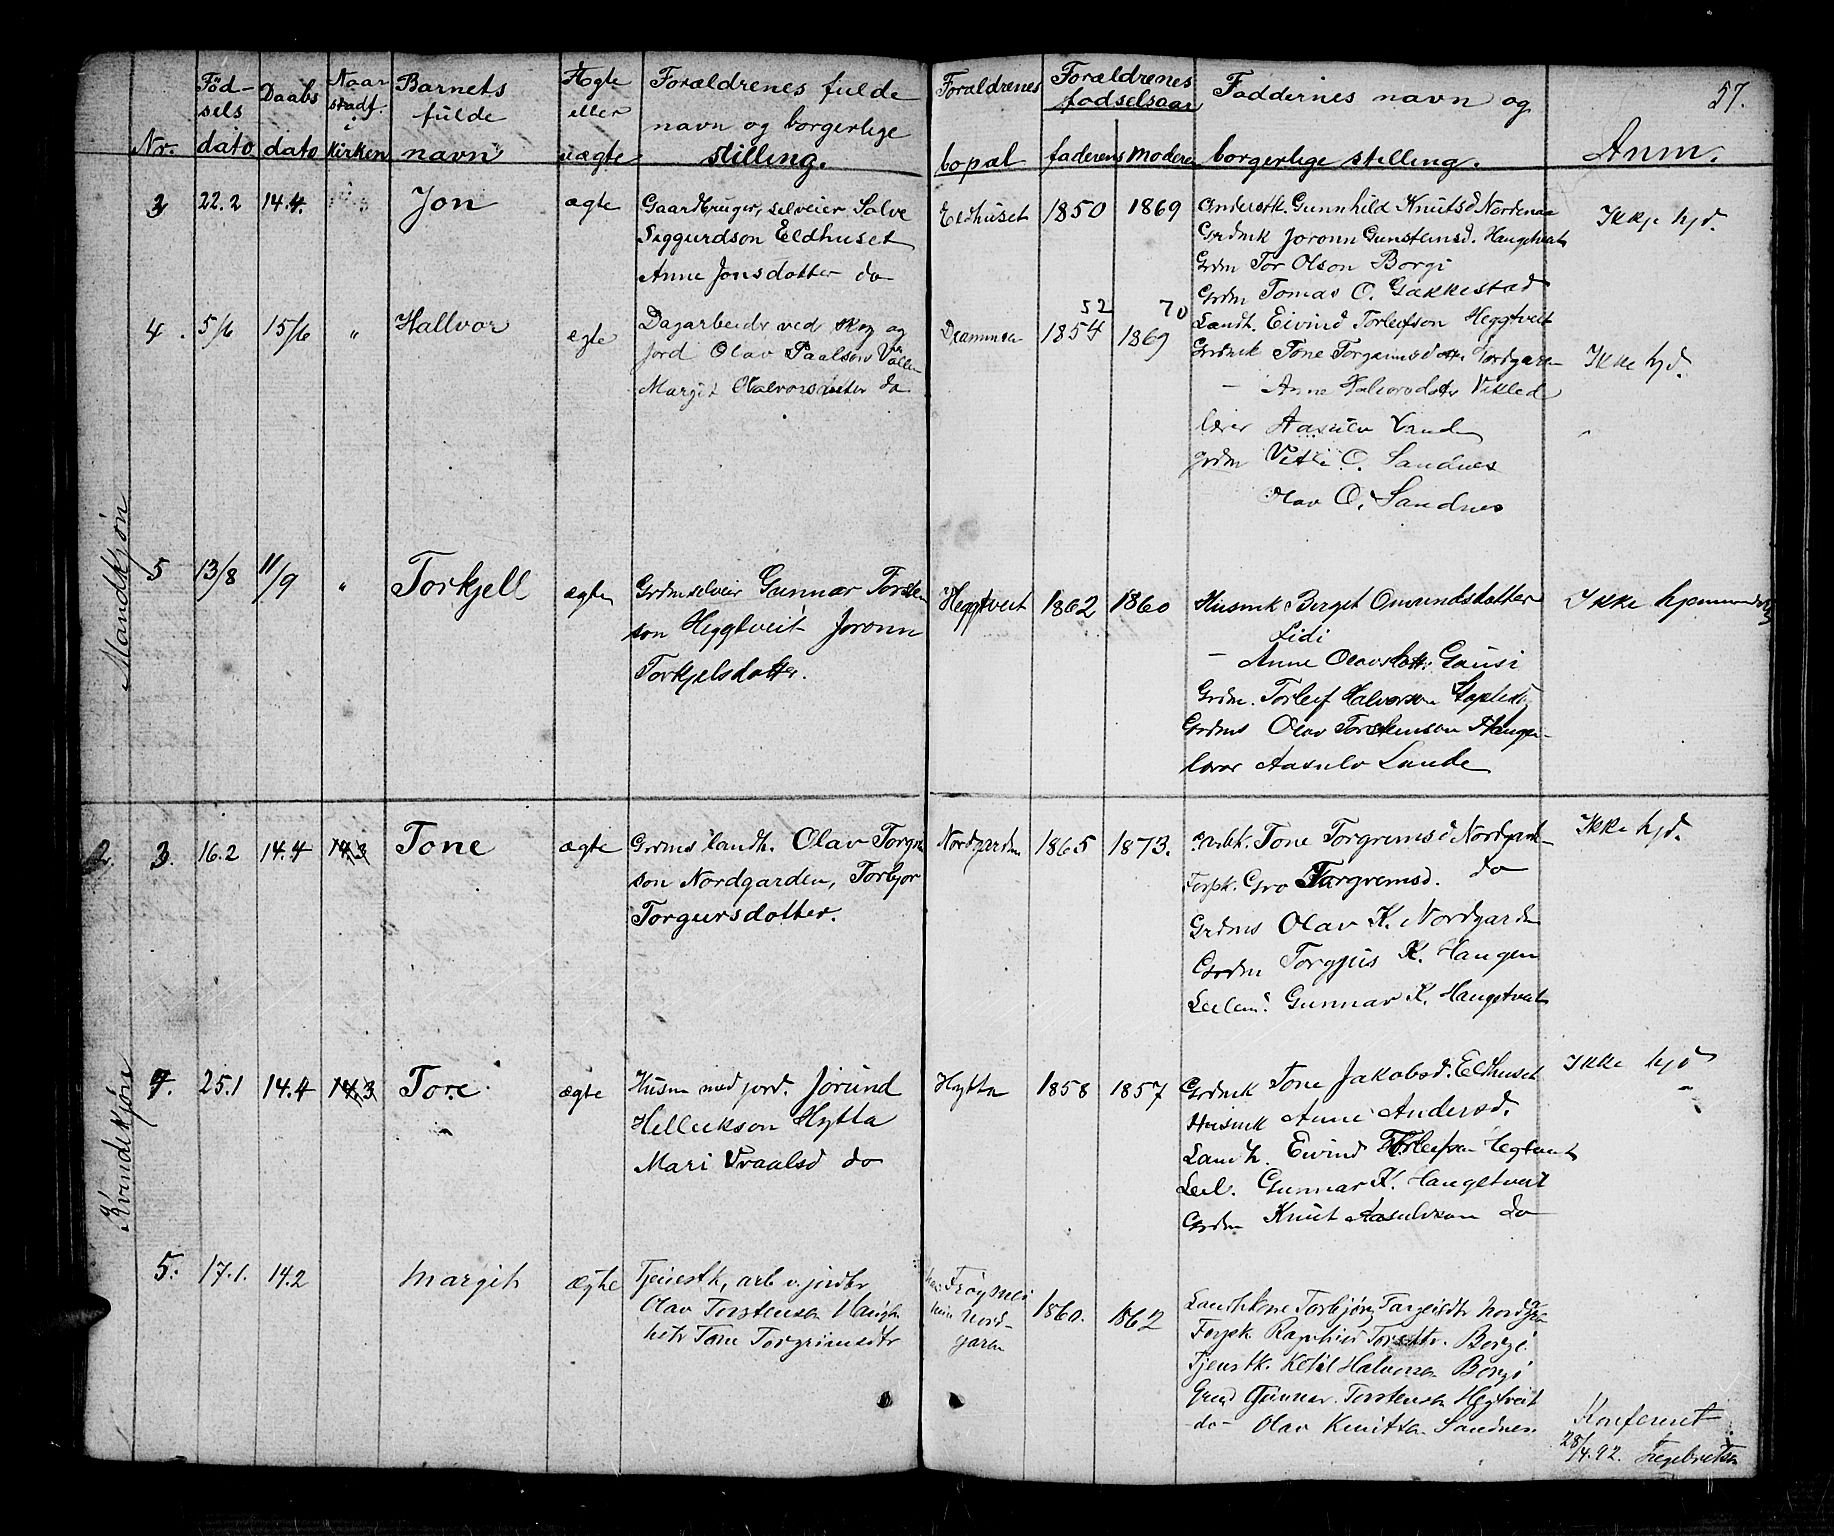 57.
Nr. Fød- sels dato Daabs dato Naar stadf. i Kirken Barnets fulde navn Ægte eller uægte Forældrenes fulde navn og borgerlige stilling. Forældrenes bopæl Forældrenes fødselsaar faderens moderens Faddernes navn og borgerlige stilling. Anm.
Mandkjøn
3 22.2 14.4. Jon ægte Gaardbruger, selveier Salve Eldhuset 1850 1869 Gunnhild Knutsd Nordgaa Ikkje hjd.
Siggurdson Eldhuset Grdmk Joronn Gunsteinsd. Haugetveit
Anne Jonsdotter do Grdm Tor Olson Borgi
Grdm Tomas O. Gakkestad
52 70
4. 5/6 15/6 " Hallvor egte Dagarbeider ved skog og Drammen 1854 1869 Landh. Eivind Torleifson Heggtveit
jord Olav Paalson Grdmk Tone Torgrimsdotter Nordgaren Ikke hjd.
Margit Olavsdotter do. — Anne Halvorsdtr Vikled
lærer Aasulv Lande
grdm O. Sandnes
Olav O. Sandnes
5 13/8 11/9 " Torkjell ægte Grdm selveier Gunnar Torsten Heggtveit 1862 1860 Husmk. Berget Omundsdotter Ikke hjemme
son Heggtveit Joronn Lidi
Torkjelsdotter. — Anne Olavsdott: Gausi
Grdm. Torleif Halvorson
Grdms Olav Torsteinson Haugen
lærer Aasulv Lande
Kvindekjøn
3. 16.2 14.4 14.3 Tone ægte Grdms landh. Olav Torgrim Nordgarden 1865 1873. Tone Torgrimsd Nordgard Ikke hjd.
son Nordgarden, Torbjor Forpk. Gro Torgrimsd. do
Torgeirsdotter. Grdms Olav K. Nordgarden
Grdm Torgjus K. Haugen
Leilend. Gunnar K. Haugetveit
4. 25.1 14.4 14.3 Tore ægte Husm med jord. Jørund Hytta 1858 1857 Grdmk Tone Jakobsd. Eldhuset Ikke hjd
Helleikson Hytta Husmk Anne Andersd.
Mari Vraalsd do Landh. Eivind Torleifson Hegtveit
Leil. Gunnar K. Haugetveit
Grdm Knut Aasulvson do
5. 17.1. 14.2 Margit Ægte Tjenestk, arb v. jordbr Frøysnes 1860. 1862 Landhkone Torbjørg Targeisdtr Nordga
Olav Torstensen Haugen Nord- Forpk Ragnhild Torstdtr. Borgi
Tone Torgrimsdtr garen Tjenstk. Ketil Halvorsen Borgi
Grmd Gunnar Torstensen Hegtveit
-do- Olav Knutsen Sandnes.
Konferert
28/4.92. Ingebretsen